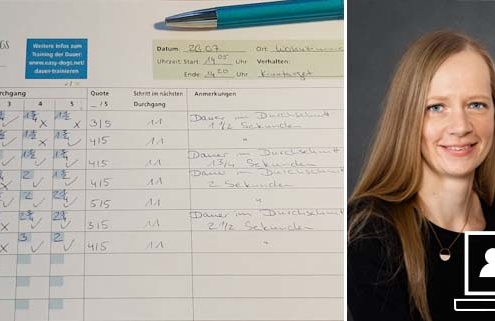 GS
Weitere Infos zum
Training der Dauer
www.easy-dogs.net/
dauer-trainieren
Datum: 28.07 Ort: Wohnzimmer
Uhrzeit: Start: 14:05 Uhr Verhalten:
Ende: 14:20 Uhr Kinntarget
chgang Quote Schritt im nächsten Anmerkungen
3 4 5 _ / 5 Durchgang
3/5 11 Dauer im Durchschnitt
1 1/2 Sekunden
4/5 11 "
4/5 11 Dauer im Durchschnitt
1 3/4 Sekunden
4/5 11 Dauer im Durchschnitt
2 Sekunden
5/5 11 "
3/5 11 Dauer im Durchschnitt
2 1/2 Sekunden
4/5 11 "